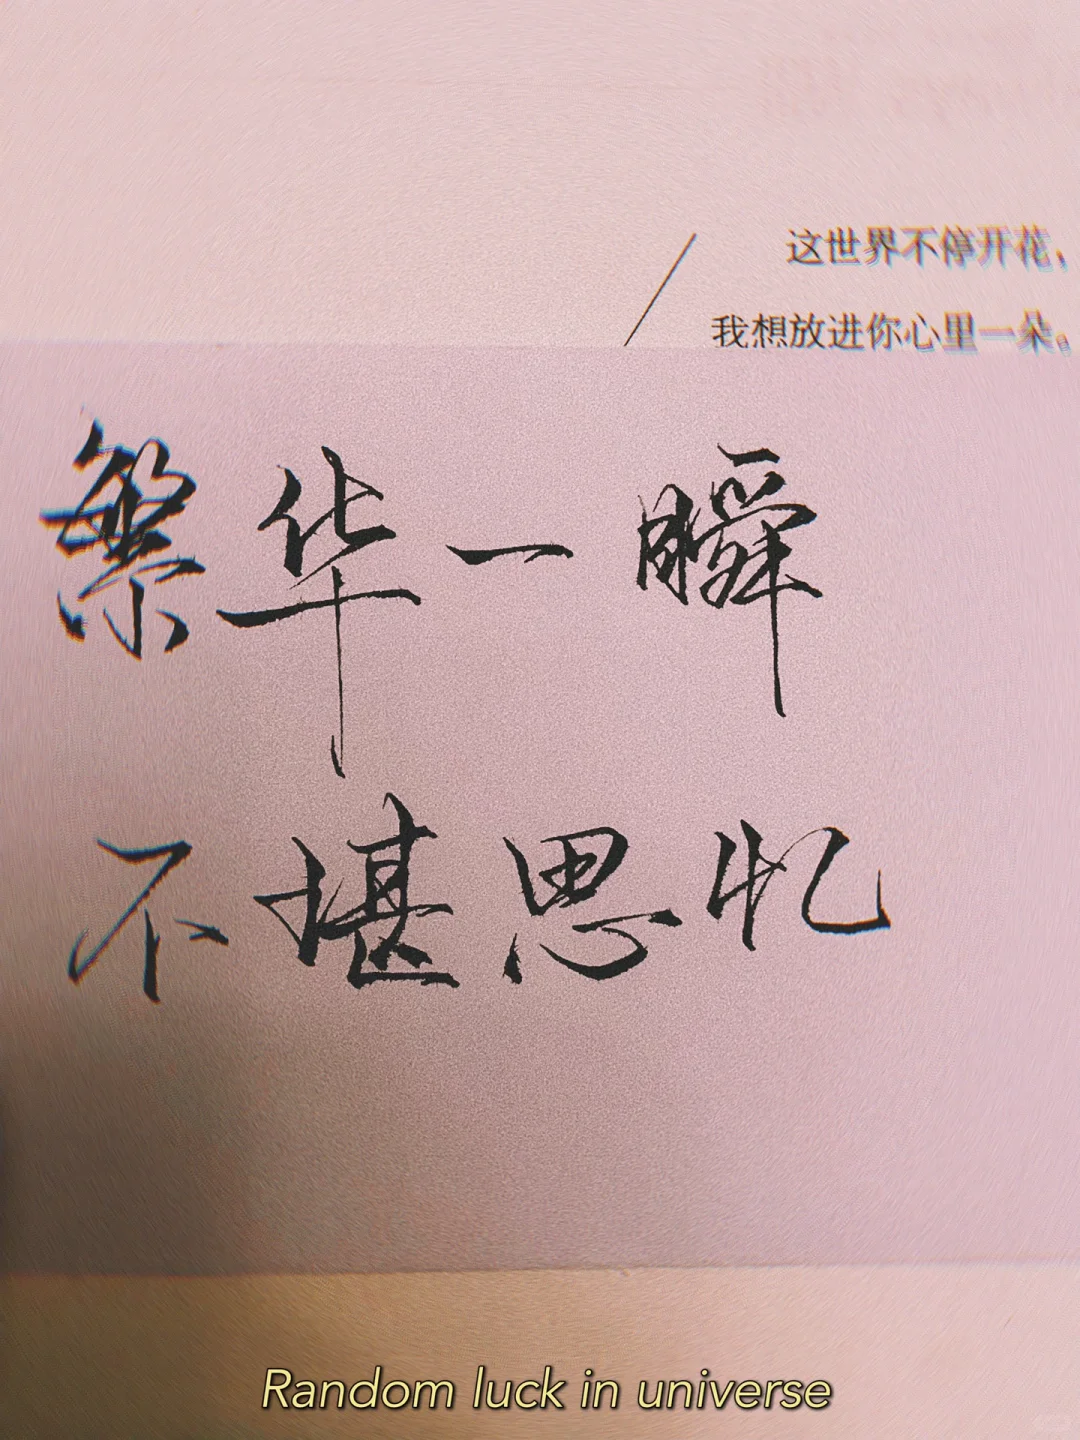 这世界不停开花，
我想放进你心里一朵。
繁华一瞬
不堪思忆
Random luck in universe